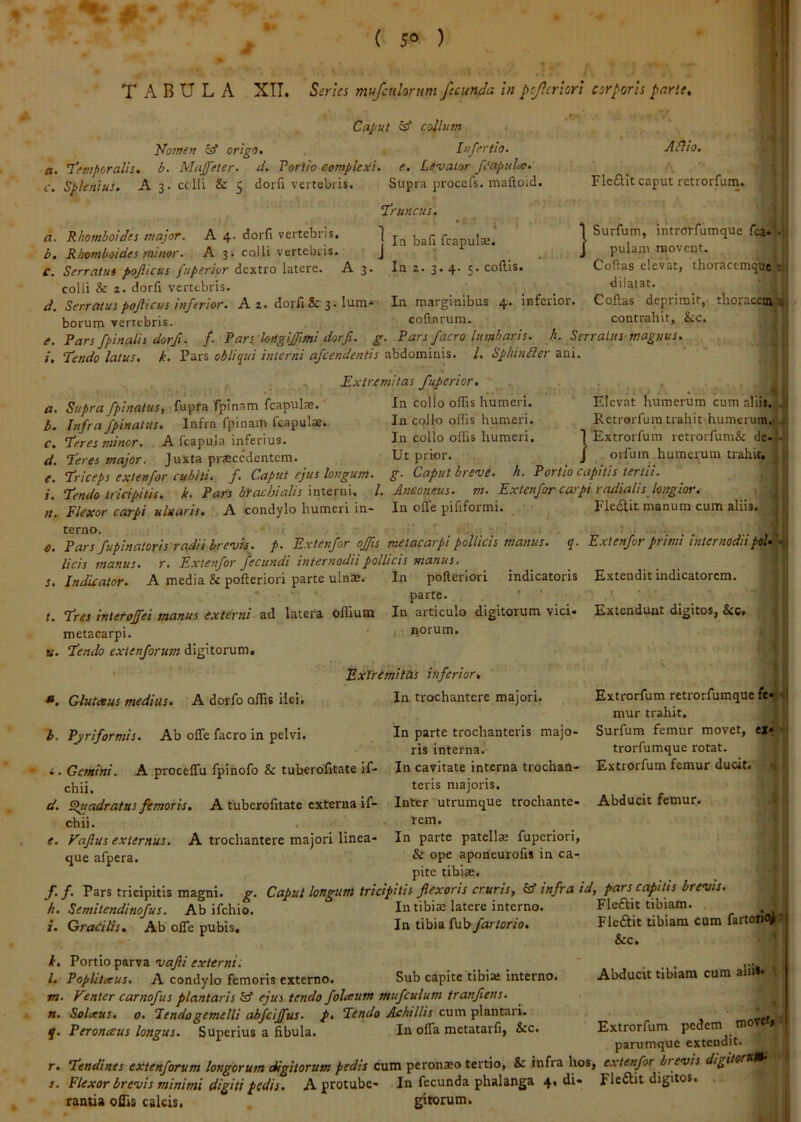 ( 50 )
TABULA XII. Series musculorum secunda in posteriori corporis parte.
Caput & collum
Nomen & origo. Insertio. Actio.
a. Temporalis. b. Masseter. d. Portio complexi. e. Levator scapulæ.
c. Splenius. A 3. colli & 5 dorsi vertebris. Supra process. mastoid. Flectit caput retrorsum.
Truncus.
a. Rhomboides major. A 4. dorsi vertebris. } In basi scapulæ. } Sursum, introrsumque sca-
b. Rhomboides minor. A 3. colli vertebris. pulam movent.
c. Serratus posticus superior dextro latere. A 3. In 2. 3. 4. 5. costis. Costas elevat, thoracemque
colli & 2. dorsi vertebris. dilatat.
d. Serratus posticus inferior. A 2. dorsi & 3. lum- In marginibus 4. inferior. Costas deprimit, thoracem
borum vertebris. costarum. contrahit, &c.
e. Pars spinalis dorsi. f. Pars longissimi dorsi. g. Pars sacro lumbaris. h. Serratus magnus.
i. Tendo latus. k. Pars obliqui interni ascendentis abdominis. l. Sphincter ani.
Extremitas superior.
a. Supra spinatus, supra spinam scapulæ. In collo ossis humeri. Elevat humerum cum aliis.
b. Infra spinatus. Infra spinam scapulæ. In collo ossis humeri. Retrorsum trahit humerum.
c. Teres minor. A scapula inferius. In collo ossis humeri. } Extrorsum retrorsum& de-
d. Teres major. Juxta præcedentem. Ut prior. orsum humerum trahit.
e. Triceps extensor cubiti. f. Caput ejus longum. g. Caput breve. h. Portio capitis tertii.
i. Tendo tricipitis. k. Pars brachialis interni. l. Anconeus. m. Extensor carpi radialis longior.
n. Flexor carpi ulnaris. A condylo humeri in- In osse pisiformi. Flectit manum cum aliis.
terno.
o. Pars supinatoris radii brevis. p. Extensor ossis metacarpi pollicis manus. q. Extensor primi internodii pol-
licis manus. r. Extensor secundi internodii pollicis manus.
s. Indicator. A media & posteriori parte ulnæ. In posteriori indicatoris Extendit indicatorem.
parte.
t. Tres interossei manus externi ad latera ossium In articulo digitorum vici- Extendunt digitos, &c.
metacarpi. norum.
u. Tendo extensorum digitorum.
Extremitas inferior.
a. Glutæus medius. A dorso ossis ilei. In trochantere majori. Extrorsum retrorsumque fe-
mur trahit.
b. Pyriformis. Ab osse sacro in pelvi. In parte trochanteris majo- Sursum femur movet, ex-
ris interna. trorsumque rotat.
c. Gemini. A processu spinoso & tuberositate is- In cavitate interna trochan- Extrorsum femur ducit.
chii. teris majoris.
d. Quadratus femoris. A tuberositate externa is- Inter utrumque trochante- Abducit femur.
chii. rem.
e. Vastus externus. A trochantere majori linea- In parte patellæ superiori,
que aspera. & ope aponeurosis in ca-
pite tibiæ.
f. f. Pars tricipitis magni. g. Caput longum tricipitis flexoris cruris, & infra id, pars capitis brevis.
h. Semitendinosus. Ab ischio. In tibiæ latere interno. Flectit tibiam.
i. Gracilis. Ab osse pubis. In tibia sub sartorio. Flectit tibiam cum sartorio,
&c.
k. Portio parva vasti externi.
l. Poplitæus. A condylo femoris externo. Sub capite tibiæ interno. Abducit tibiam cum aliis.
m. Venter carnosus plantaris & ejus tendo solæum musculum transiens.
n. Solæus. o. Tendo gemelli abscissus. p. Tendo Achillis cum plantari.
q. Peronæus longus. Superius a fibula. In ossa metatarsi, &c. Extrorsum pedem movet,
parumque extendit.
r. Tendines extensorum longorum digitorum pedis cum peronæo tertio, & infra hos, extensor brevis digitorum.
s. Flexor brevis minimi digiti pedis. A protube- In secunda phalanga 4. di- Flectit digitos.
rantia ossis calcis. gitorum.